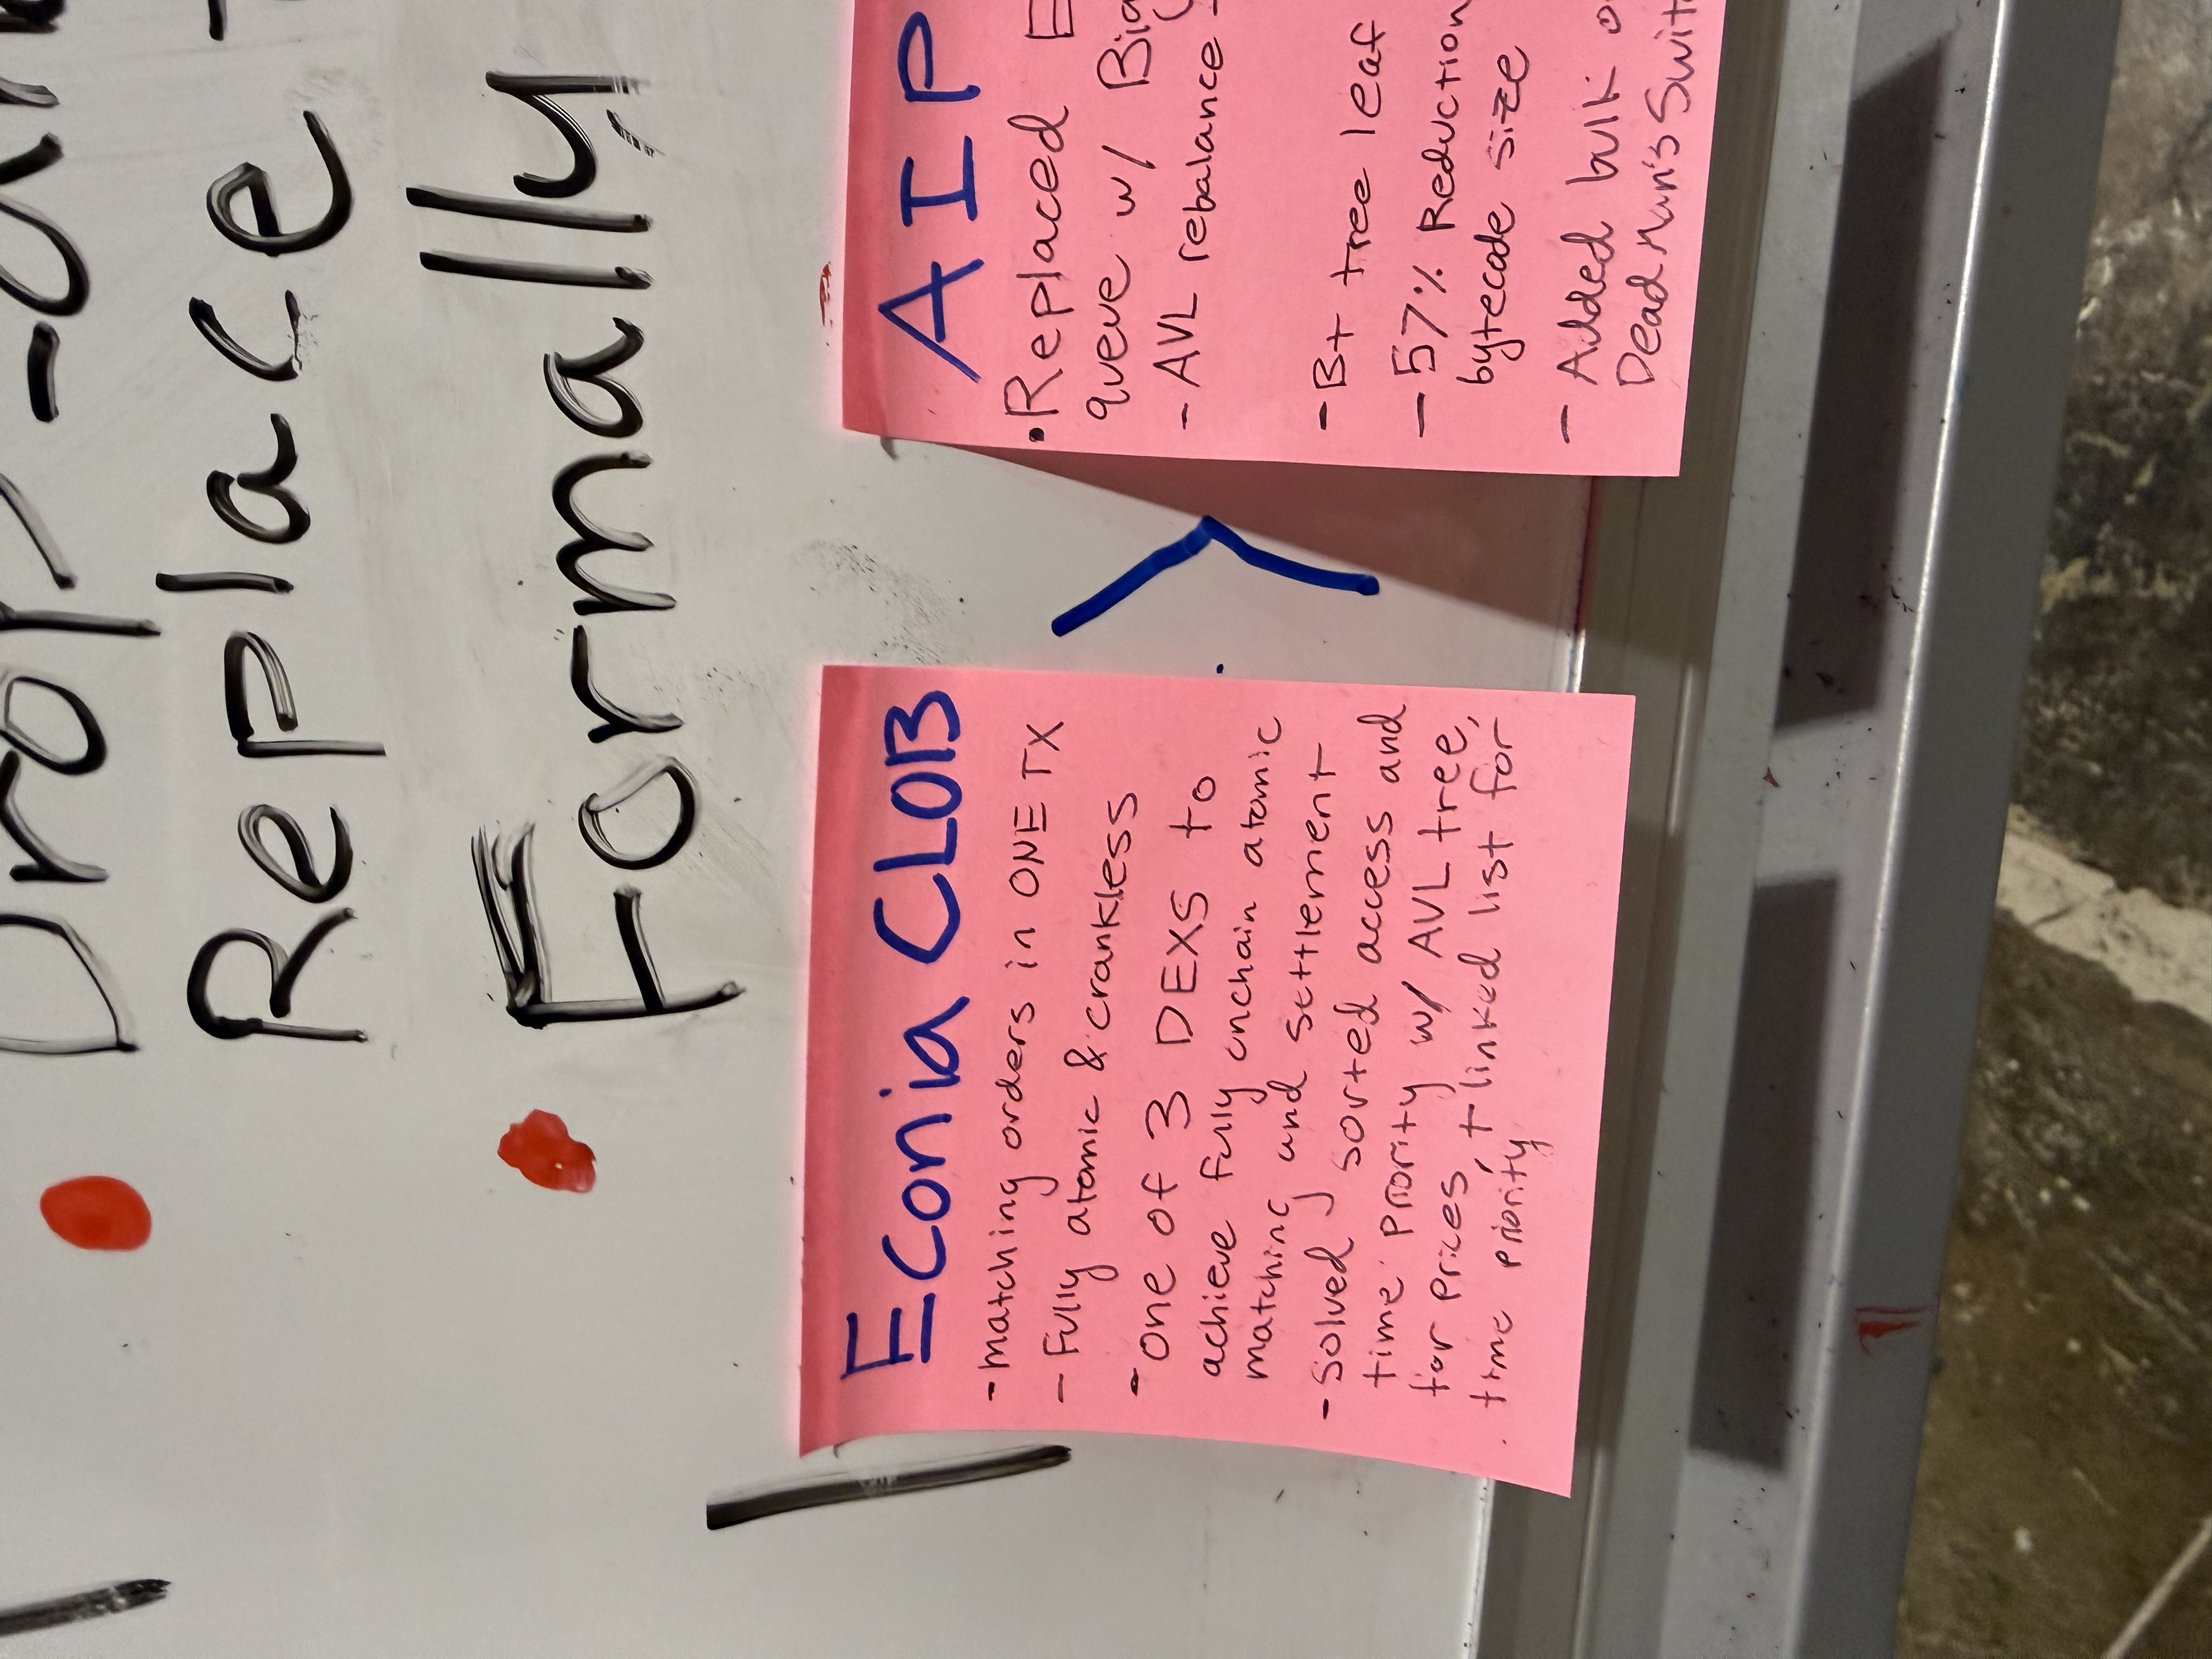 Replace
Formally
Econia CLOB
- matching orders in ONE TX
- Fully atomic & crankless
- one of 3 DEXS to
achieve fully onchain atomic
matching and settlement
- solved sorted access and
time priority w/ AVL tree,
for prices, + linked list for
time priority
AIP
• Replaced E
queue w/ Big
- AVL rebalance
- B+ tree leaf
- 57% Reduction
bytecode size
- Added bulk
Dead Man's Swit